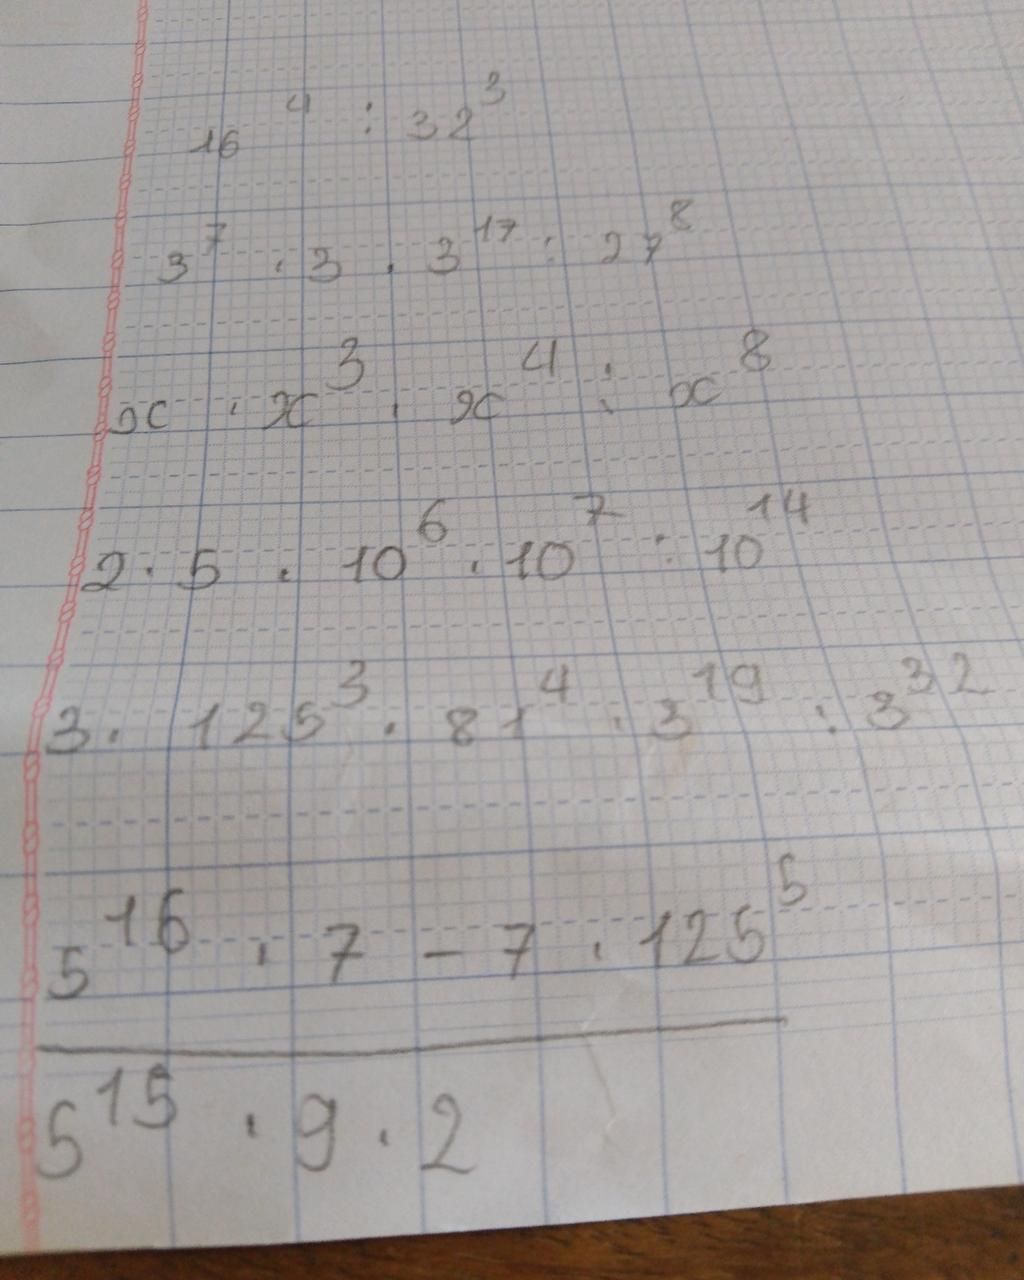 16⁴ : 32³
3⁷ · 3 · 3¹⁷ : 27⁸
x · x³ · x⁴ : x⁸
2 · 5 · 10⁶ · 10⁷ : 10¹⁴
3 · 125³ · 81⁴ · 3¹⁹ : 3³²
5¹⁶ · 7 - 7 · 125⁵
5¹⁵ · 9 · 2